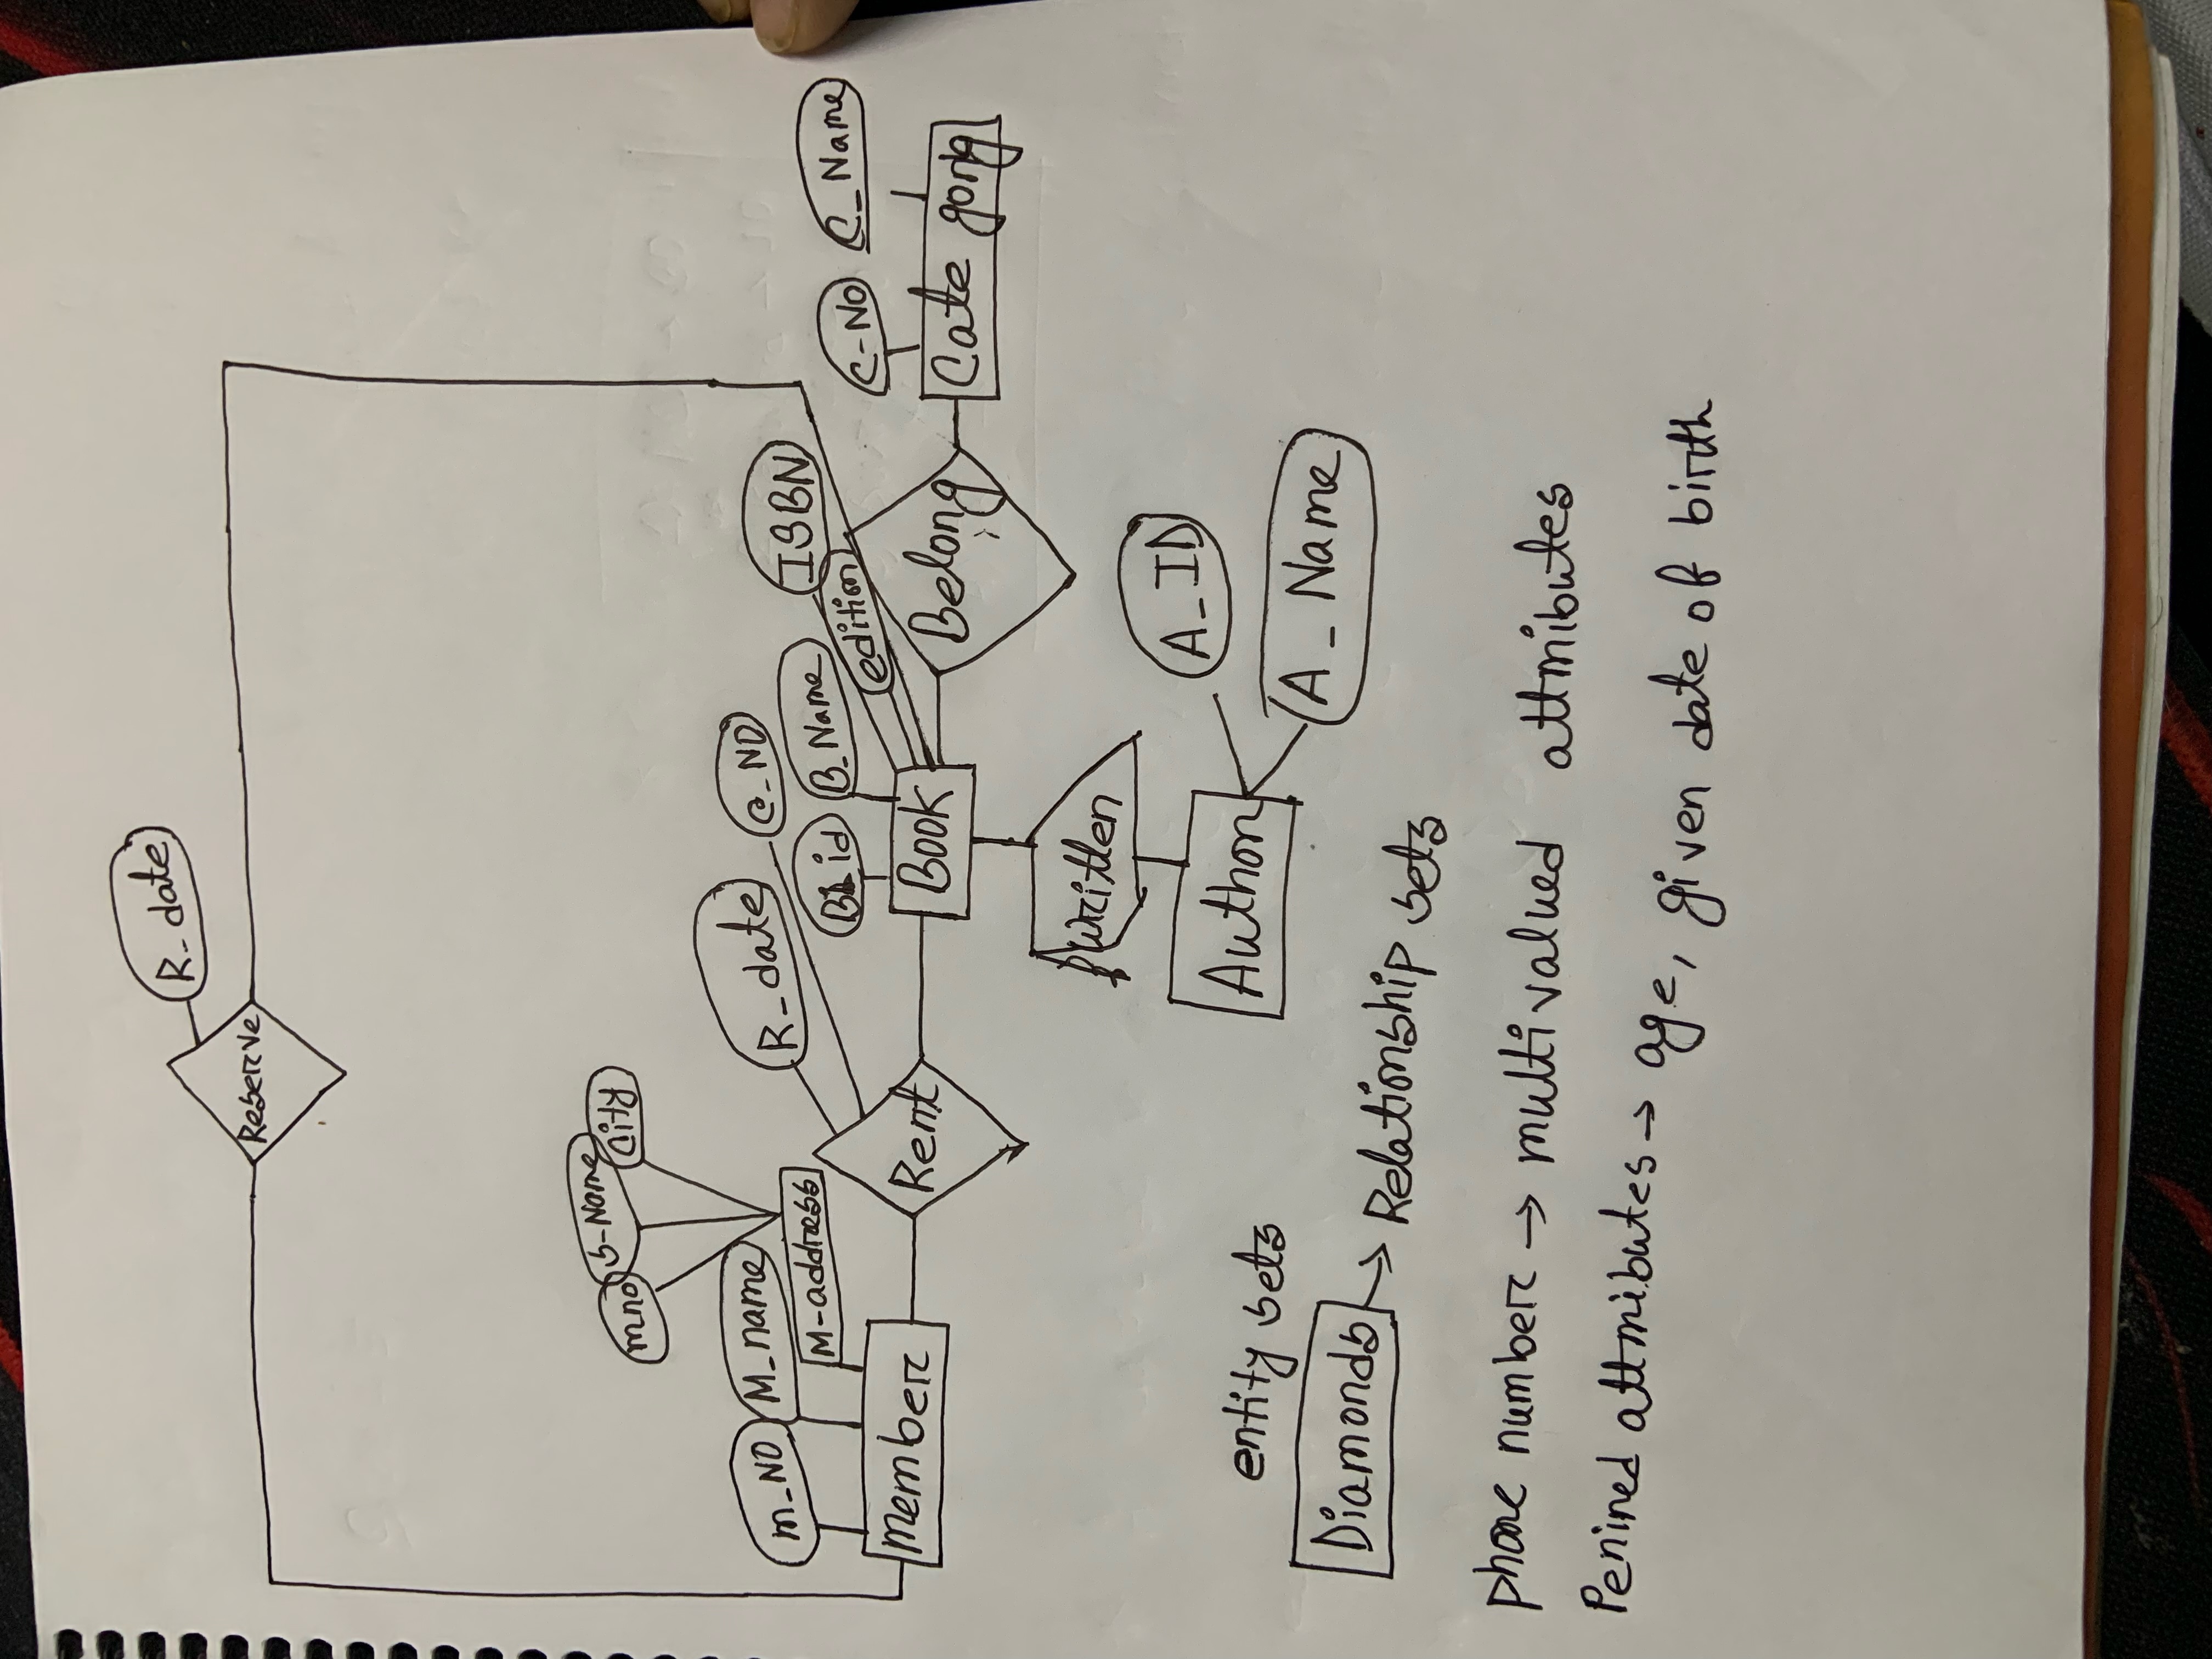 R_date
Reserve
mno
S-Name
City
m_NO
M_name
M-address
R_date
C_NO
B_id
B_Name
ISBN
edition
C-NO
C_Name
member
Rent
Book
Belong
Cate gory
written
Author
A_ID
A_Name
entity sets
Diamonds → Relationship sets
phone number → multivalued attributes
attributes → age, given date of birth